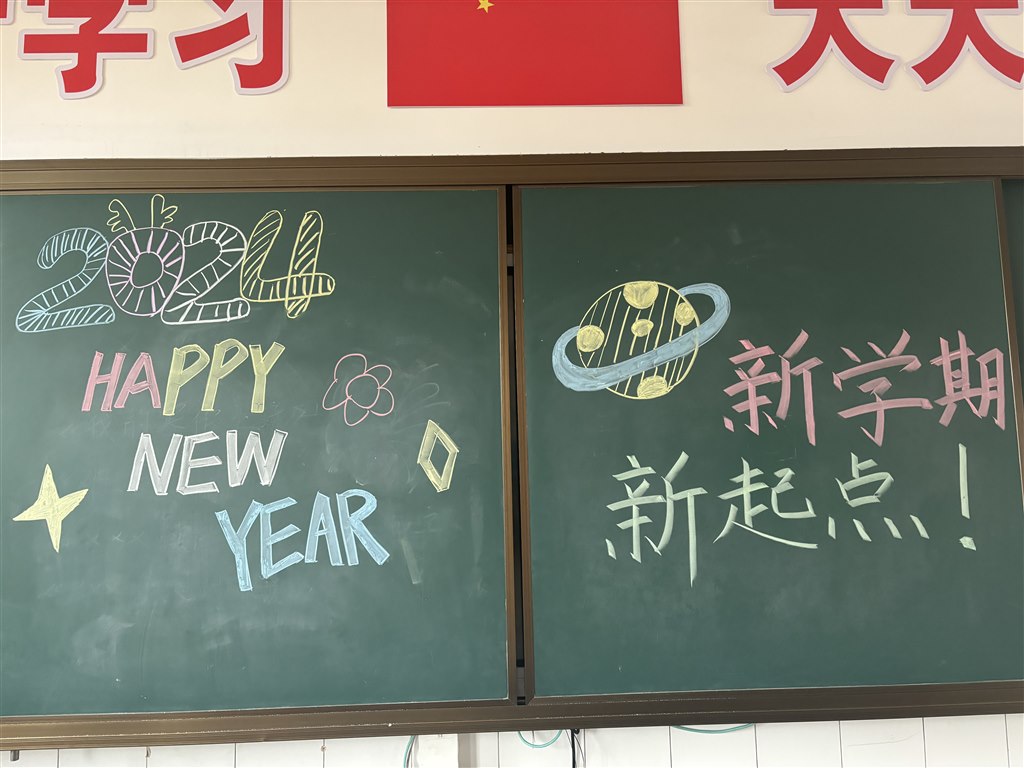 学习
天天
2024
HAPPY
NEW
YEAR
新学期
新起点!